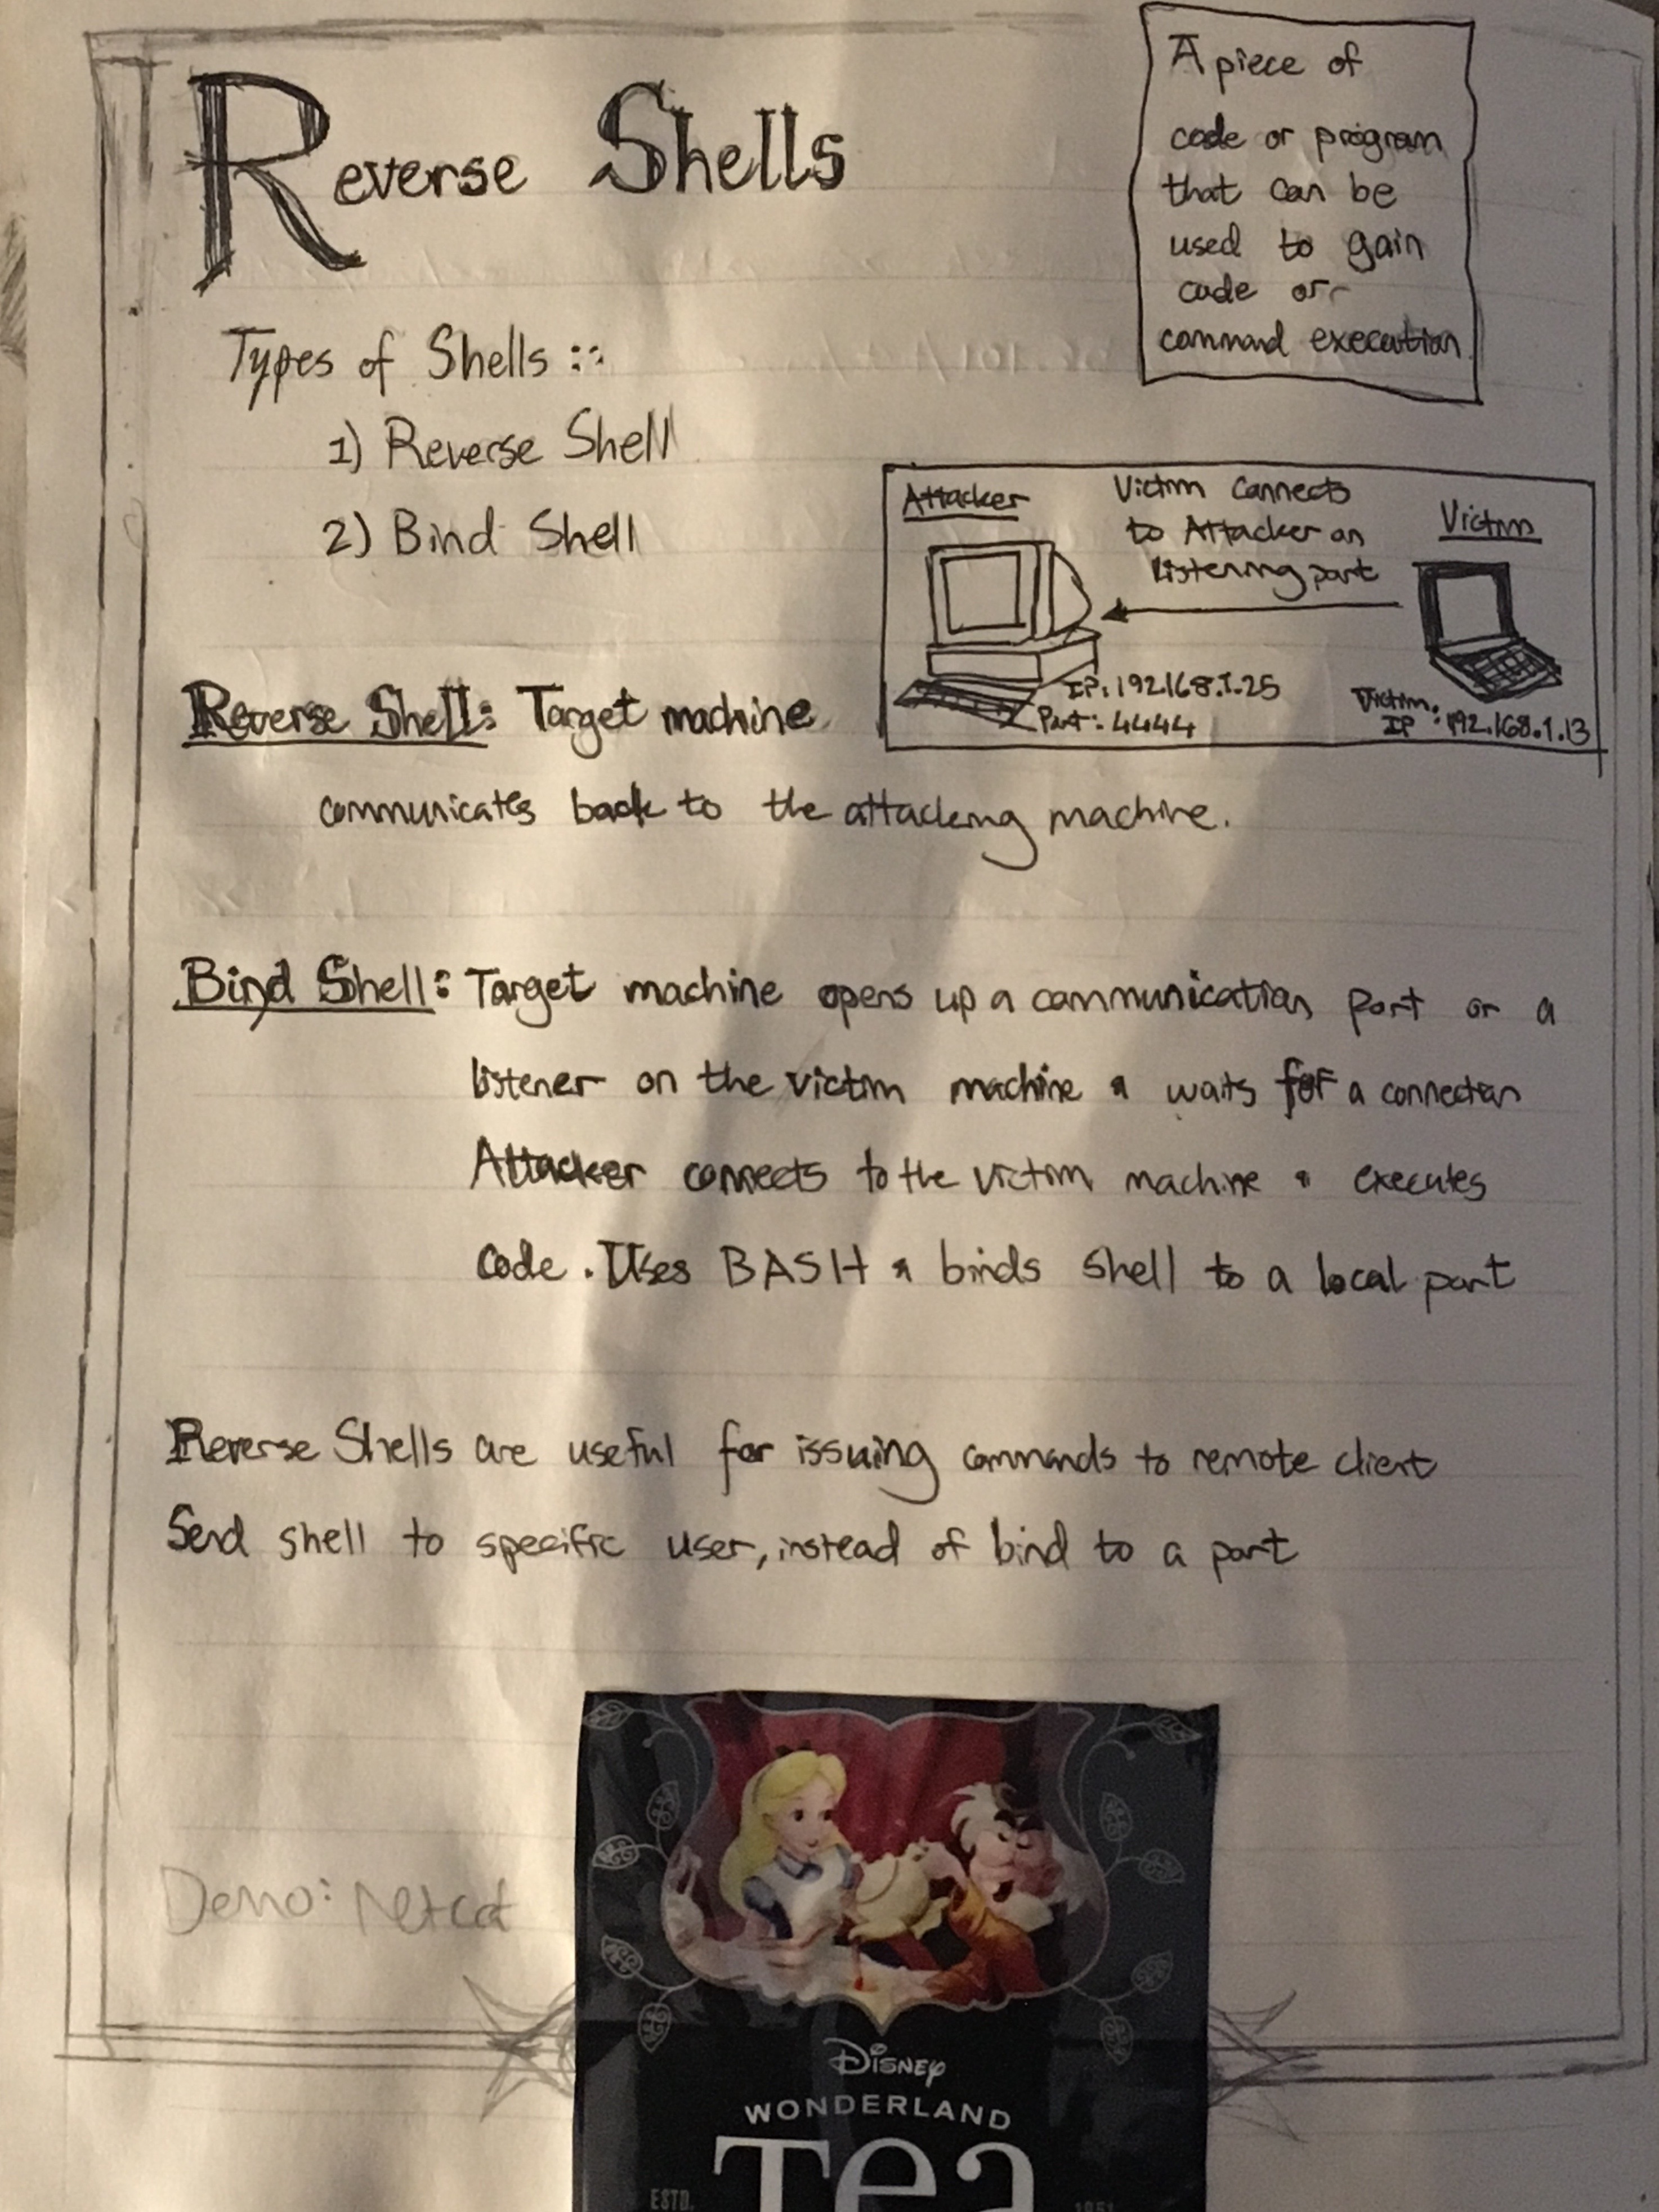 Reverse Shells
A piece of
code or program
that can be
used to gain
code or
command execution
Types of Shells ::
1) Reverse Shell
2) Bind Shell
Attacker
Victim Connects
to Attacker on
listening port
Victim
IP: 192.168.1.25
Port: 4444
Victim
IP: 192.168.1.13
Reverse Shell: Target machine
communicates back to the attacking machine.
Bind Shell: Target machine opens up a communication port or a
listener on the victim machine & waits for a connection
Attacker connects to the victim machine & executes
code. Uses BASH & binds shell to a local port
Reverse Shells are useful for issuing commands to remote client
Send shell to specific user, instead of bind to a port
Demo: Netcat
Disney
WONDERLAND
Tea
ESTD. 1951